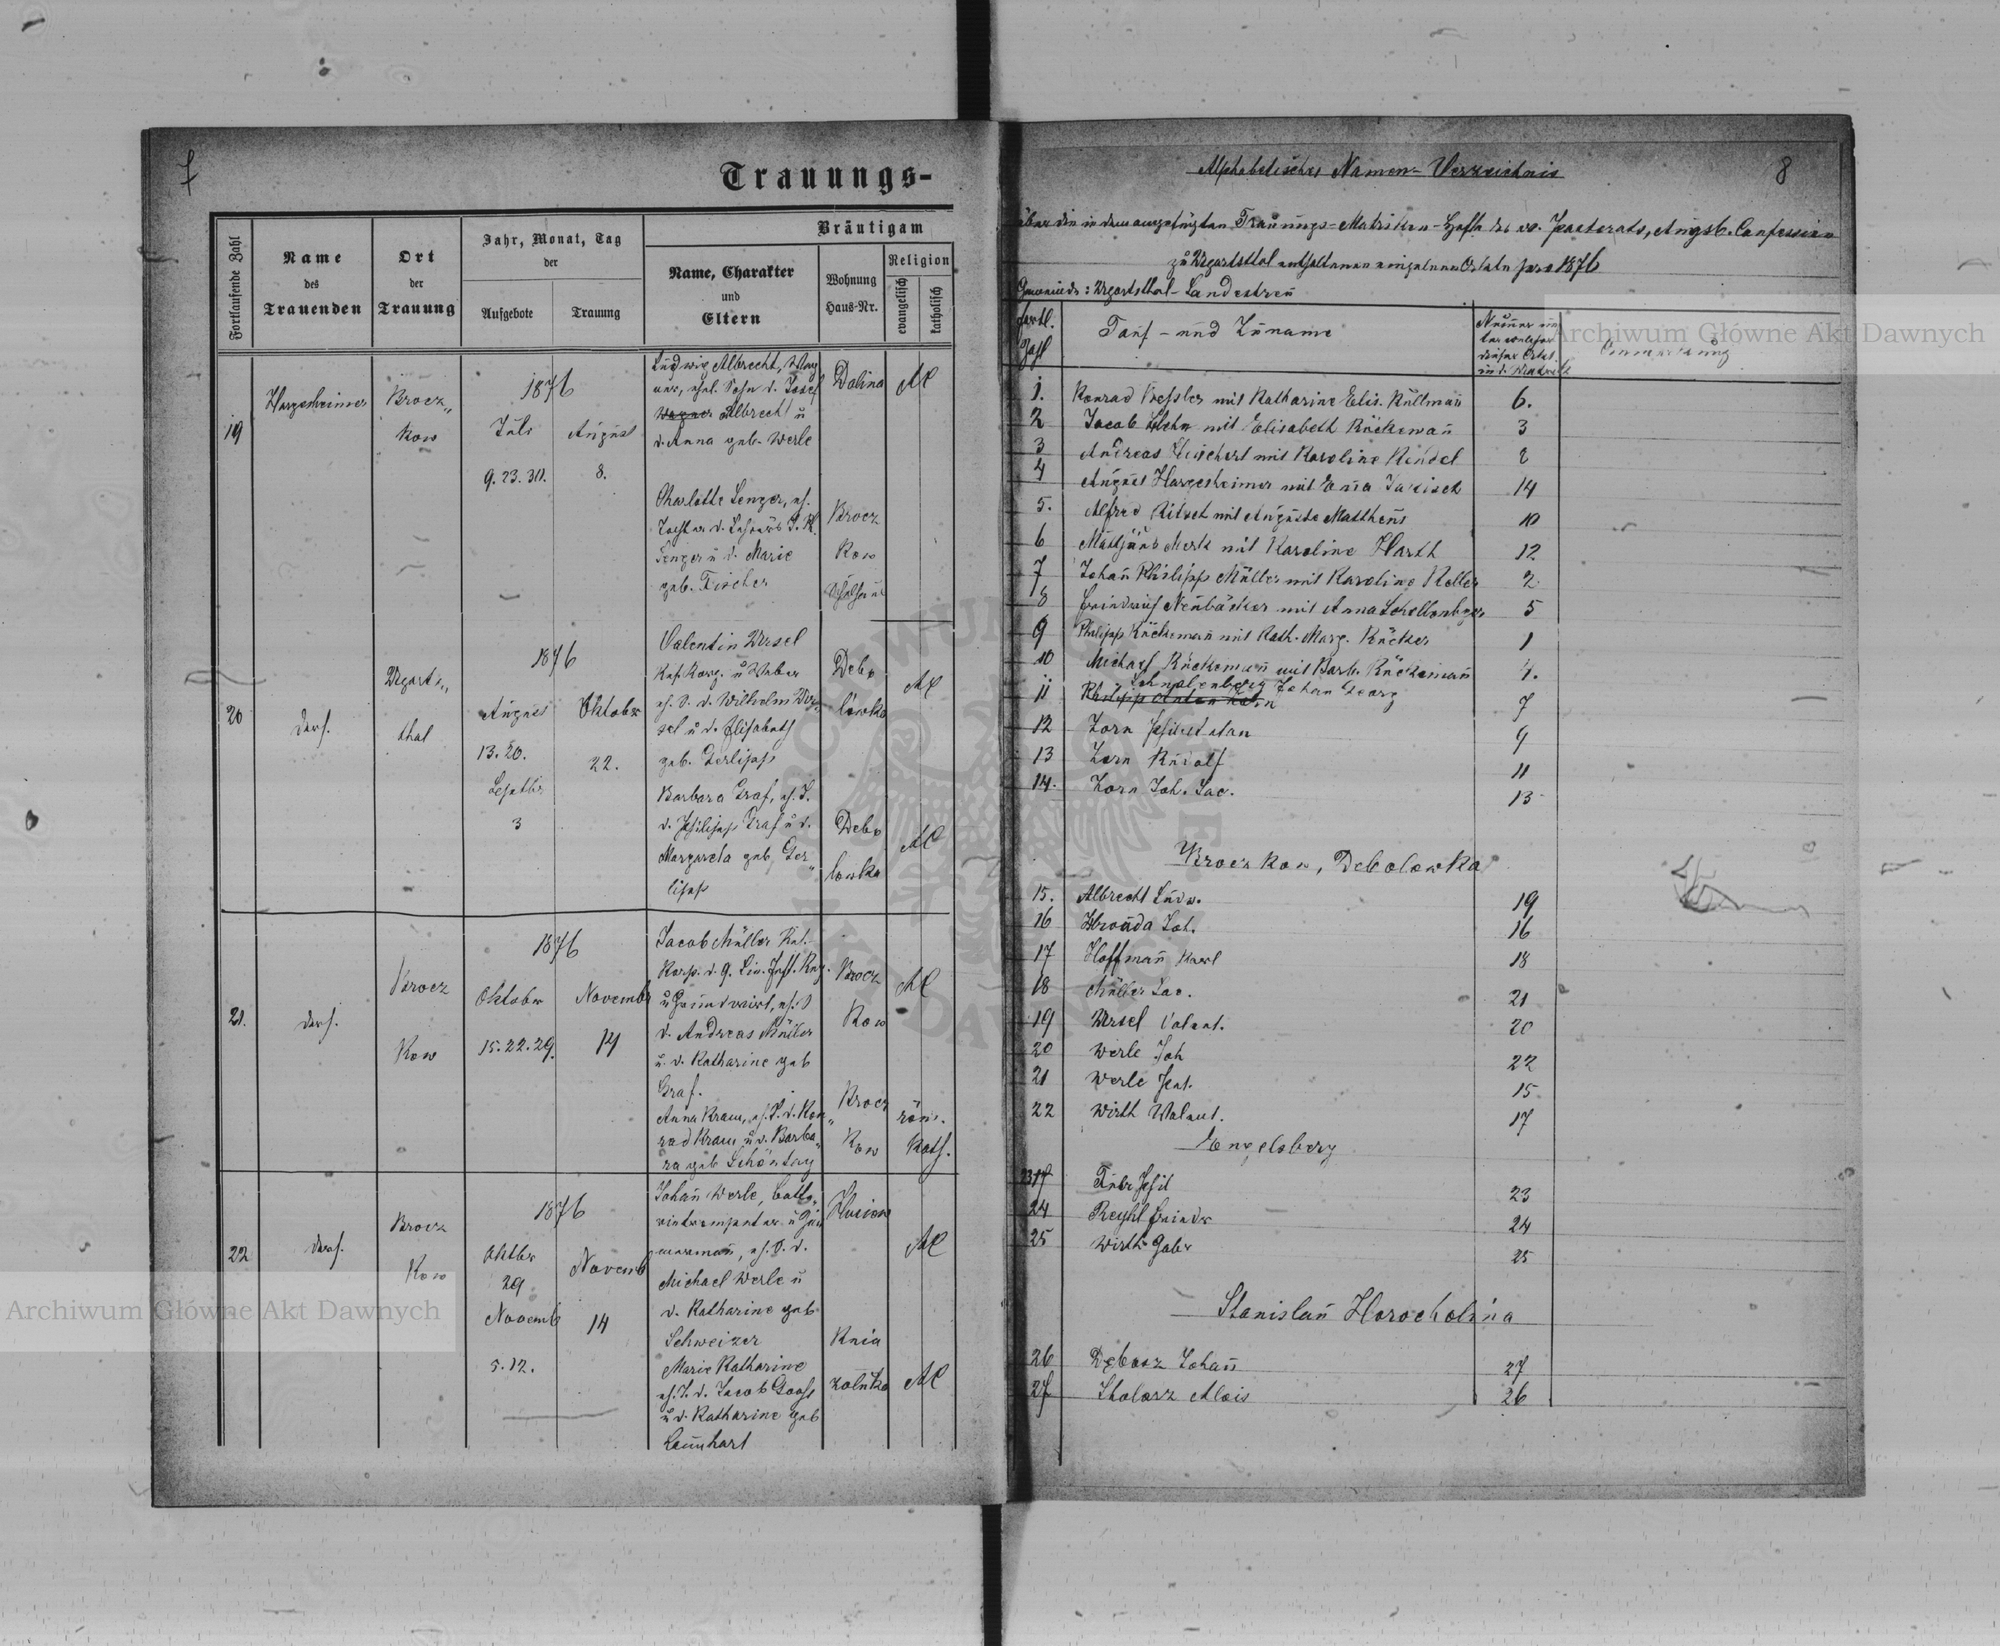 7
Trauungs-
Fortlaufende Zahl
Name
des
Trauenden
Ort
der
Trauung
Jahr, Monat, Tag
der
Aufgebote
Trauung
Bräutigam
Name, Charakter
und
Eltern
Wohnung
Haus-Nr.
Religion
evangelisch
katholisch
19
Hargesheimer
Brocz„
kow
1876
Juli
9. 23. 30.
August
8.
Ludwig Albrecht, Wag
ner, ehel. Sohn d. Josef
Wagner Albrecht u
d. Anna geb. Werle
Dolina
AC
Charlotte Senger, eh.
Tochter d.
Senger u d. Marie
geb. Fischer
Brocz
Kow
20
ders.
Ugarts„
thal
1876
August
13. 20.
Septbr
3
Oktober
22.
Valentin Ursel
u Weber
eh. S. d. Wilhelm Ur„
sel u d. Elisabeth
geb. Gerlipp
Debo
lowka
AC
Barbara Graf, eh. T.
d. Philipp Graf u d.
Margareta geb. Ger„
lipp
Debo
lowka
AC
21.
ders.
Brocz
Kow
1876
Oktober
15. 22. 29.
November
14
Jacob Müller
Korp. d. 9. Lin. Inft. Reg.
u Grundwirt, eh. S
d. Andreas Müller
u. d. Katharine geb
Graf.
Brocz
Kow
AC
Anna Kram, eh. T. d. Kon„
rad Kram u d. Barba„
ra geb Schöntag
Brocz
Kow
röm.
Kath.
22
ders.
Brocz
Kow
1876
Oktbr
29
Novemb
5. 12.
Novemb
14
Johann Werle,
mermann, eh. S. d.
Michael Werle u
d. Katharine geb
Schweizer
AC
Marie Katharine
eh. T. d. Jacob
u d. Katharine geb
Leonhart
Knia
zoluka
AC
8
Alphabetisches Namen-Verzeichnis
über die in dem angefügten Trauungs-Matriken-Hefte des ev. Pastorats, Augsb. Confession
zu Ugartsthal enthaltenen einzelnen Ortsteile pro 1876
Gemeinde: Ugartsthal-Landestreu
Fortl.
Zahl
Tauf- und Zuname
Anmerkung
1. Konrad Kessler mit Katharine Elis. Kullmann 6.
2 Jacob Hehn mit Elisabeth Rückemann 3
3 Andreas Teichert mit Karoline Kindel 8
4 August Hargesheimer mit Emma Jakisch 14
5. Alfred Kitsch mit Auguste Mattheus 10
6 Matthäus Merk mit Karoline Harth 12
7 Johann Philipp Müller mit Karoline Keller 2
8 Friedrich Neubäcker mit Anna Schellenberger 5
9 Philipp Rückemann mit Kath. Marg. Rücker 1
10 Michael Rückemann mit Barb. Rückemann 4.
11 Schnalenberg Johan Georg 7
12 Zorn 9
13 Zorn Rudolf 11
14. Zorn Joh. Jac. 13
Broczkow, Debolowka
15. Albrecht Ludw. 19
16 Hrouda Joh. 16
17 Hoffmann Karl 18
18 Müller Jac. 21
19 Ursel Valent. 20
20 Werle Joh 22
21 Werle Pet. 15
22 Wirth Valent. 17
Engelsberg
23 Fuhr Phil 23
24 Reyhl Friedr 24
25 Wirth Gabr 25
Stanislau Horocholina
26 Debosz Johann 27
27 Stolarz Alois 26
Archiwum Główne Akt Dawnych
Archiwum Główne Akt Dawnych